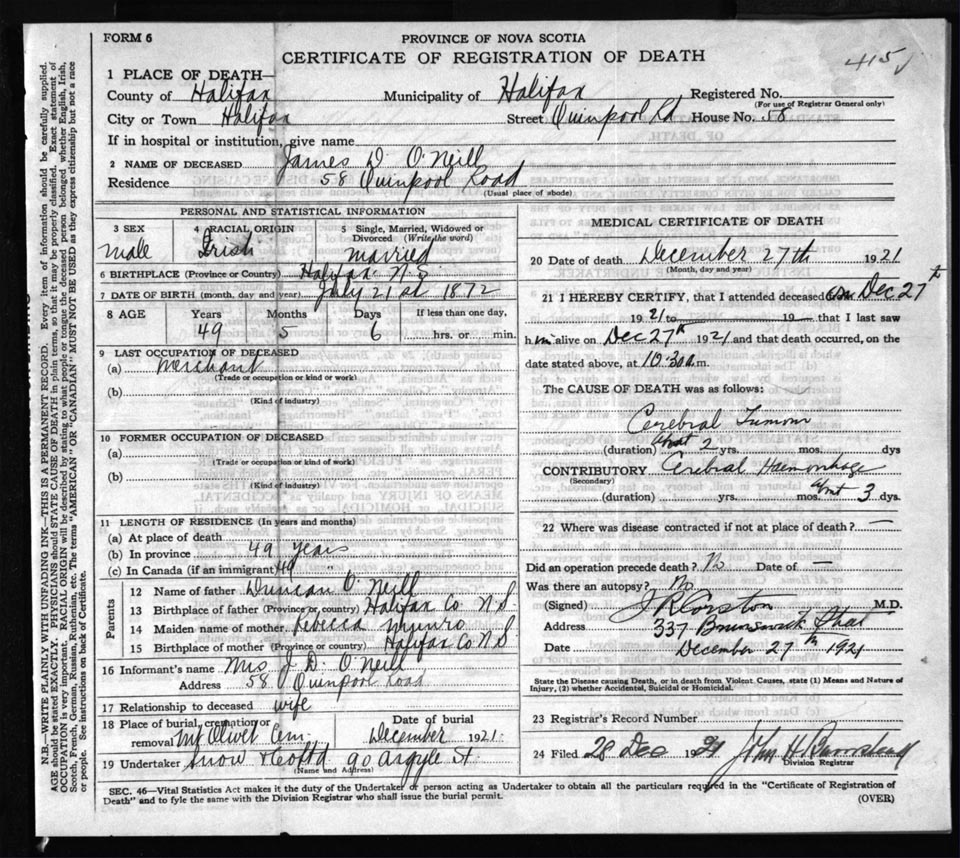 FORM 6
PROVINCE OF NOVA SCOTIA
CERTIFICATE OF REGISTRATION OF DEATH
415
1 PLACE OF DEATH—
County of Halifax Municipality of Halifax Registered No.
(For use of Registrar General only)
City or Town Halifax Street Quinpool Rd House No. 58
If in hospital or institution, give name
2 NAME OF DECEASED James D. O'Neill
Residence 58 Quinpool Road
(Usual place of abode)
PERSONAL AND STATISTICAL INFORMATION
3 SEX 4 RACIAL ORIGIN 5 Single, Married, Widowed or Divorced (Write the word)
male Irish married
6 BIRTHPLACE (Province or Country) Halifax N.S.
7 DATE OF BIRTH (month, day and year) July 21st 1872
8 AGE Years Months Days If less than one day,
49 5 6 hrs. or min.
9 LAST OCCUPATION OF DECEASED
(a) Merchant
(Trade or occupation or kind or work)
(b)
(Kind of industry)
10 FORMER OCCUPATION OF DECEASED
(a)
(Trade or occupation or kind of work)
(b)
(Kind of industry)
11 LENGTH OF RESIDENCE (In years and months)
(a) At place of death
(b) In province 49 years
(c) In Canada (if an immigrant) 49 "
Parents
12 Name of father Duncan O'Neill
13 Birthplace of father (Province or country) Halifax Co N.S.
14 Maiden name of mother Rebecca Munro
15 Birthplace of mother (Province or country) Halifax Co N S
16 Informant's name Mrs J. D. O'Neill
Address 58 Quinpool Road
17 Relationship to deceased wife
18 Place of burial, cremation or removal Mt Olivet Cem. Date of burial December 1921.
19 Undertaker Snow & Co Ltd 90 Argyle St.
(Name and Address)
MEDICAL CERTIFICATE OF DEATH
20 Date of death December 27th 1921
(Month, day and year)
21 I HEREBY CERTIFY, that I attended deceased on Dec 27th
1921 to 19— that I last saw
him alive on Dec 27th 1921 and that death occurred, on the
date stated above, at 10:30 a.m.
The CAUSE OF DEATH was as follows:
Cerebral Tumour
(duration) Abt 2 yrs. mos. dys
CONTRIBUTORY Cerebral Haemorrhage
(Secondary)
(duration) yrs. mos. Abt 3 dys.
22 Where was disease contracted if not at place of death? —
Did an operation precede death? No Date of —
Was there an autopsy? No
(Signed) J R Corston M.D.
Address 337 Brunswick Street
Date December 27th 1921
State the Disease causing Death, or in death from Violent Causes, state (1) Means and Nature of Injury, (2) whether Accidental, Suicidal or Homicidal.
23 Registrar's Record Number
24 Filed 28 Dec 1921 John H Barnstead
Division Registrar
SEC. 46—Vital Statistics Act makes it the duty of the Undertaker or person acting as Undertaker to obtain all the particulars required in the "Certificate of Registration of
Death" and to fyle the same with the Division Registrar who shall issue the burial permit.
(OVER)
N.B.—WRITE PLAINLY WITH UNFADING INK—THIS IS A PERMANENT RECORD. Every item of information should be carefully supplied.
AGE should be stated EXACTLY. PHYSICIANS should STATE CAUSE OF DEATH in plain terms, so that it may be properly classified. Exact statement of
OCCUPATION is very important. RACIAL ORIGIN will be described by stating to what people or tongue the deceased person belonged, whether English, Irish,
Scotch, French, German, Russian, Ruthenian, etc. The terms "AMERICAN" or "CANADIAN" MUST NOT BE USED as they express citizenship but not a race
or people. See instructions on back of Certificate.